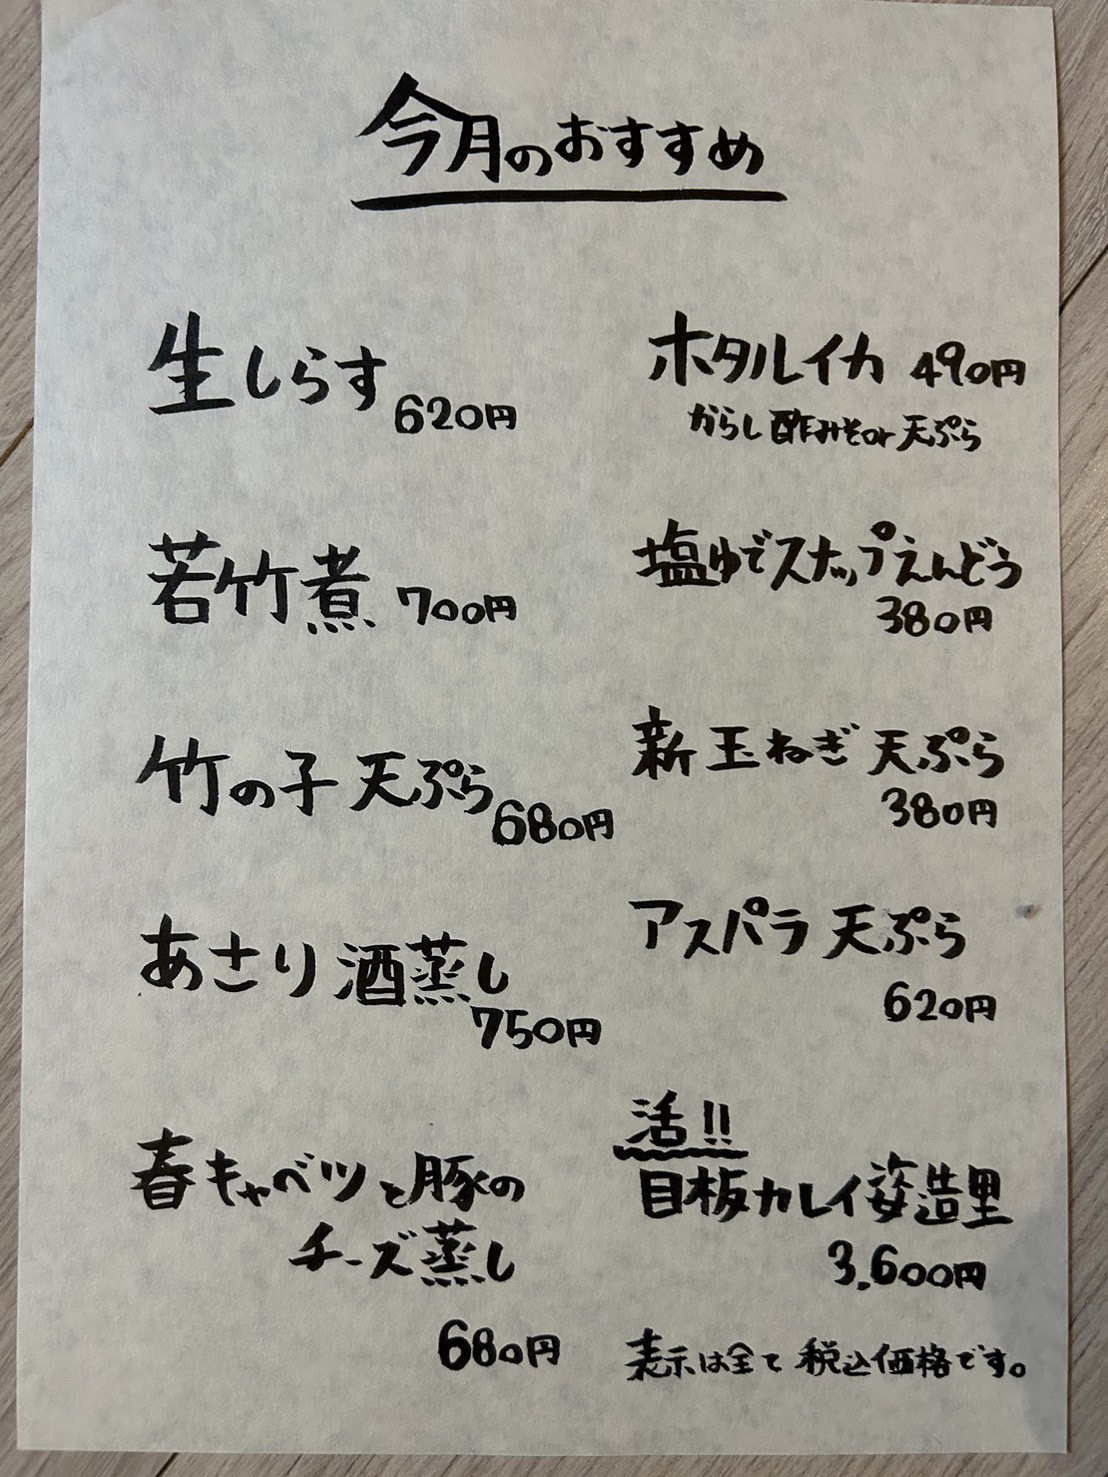 今月のおすすめ
生しらす
620円
若竹煮 700円
竹の子 天ぷら
680円
あさり 酒蒸し
750円
春キャベツと豚の
チーズ蒸し
680円
ホタルイカ 490円
からし酢みそor天ぷら
塩ゆでスナップえんどう
380円
新玉ねぎ 天ぷら
380円
アスパラ 天ぷら
620円
活!!
目板カレイ姿造里
3,600円
表示は全て 税込価格です。